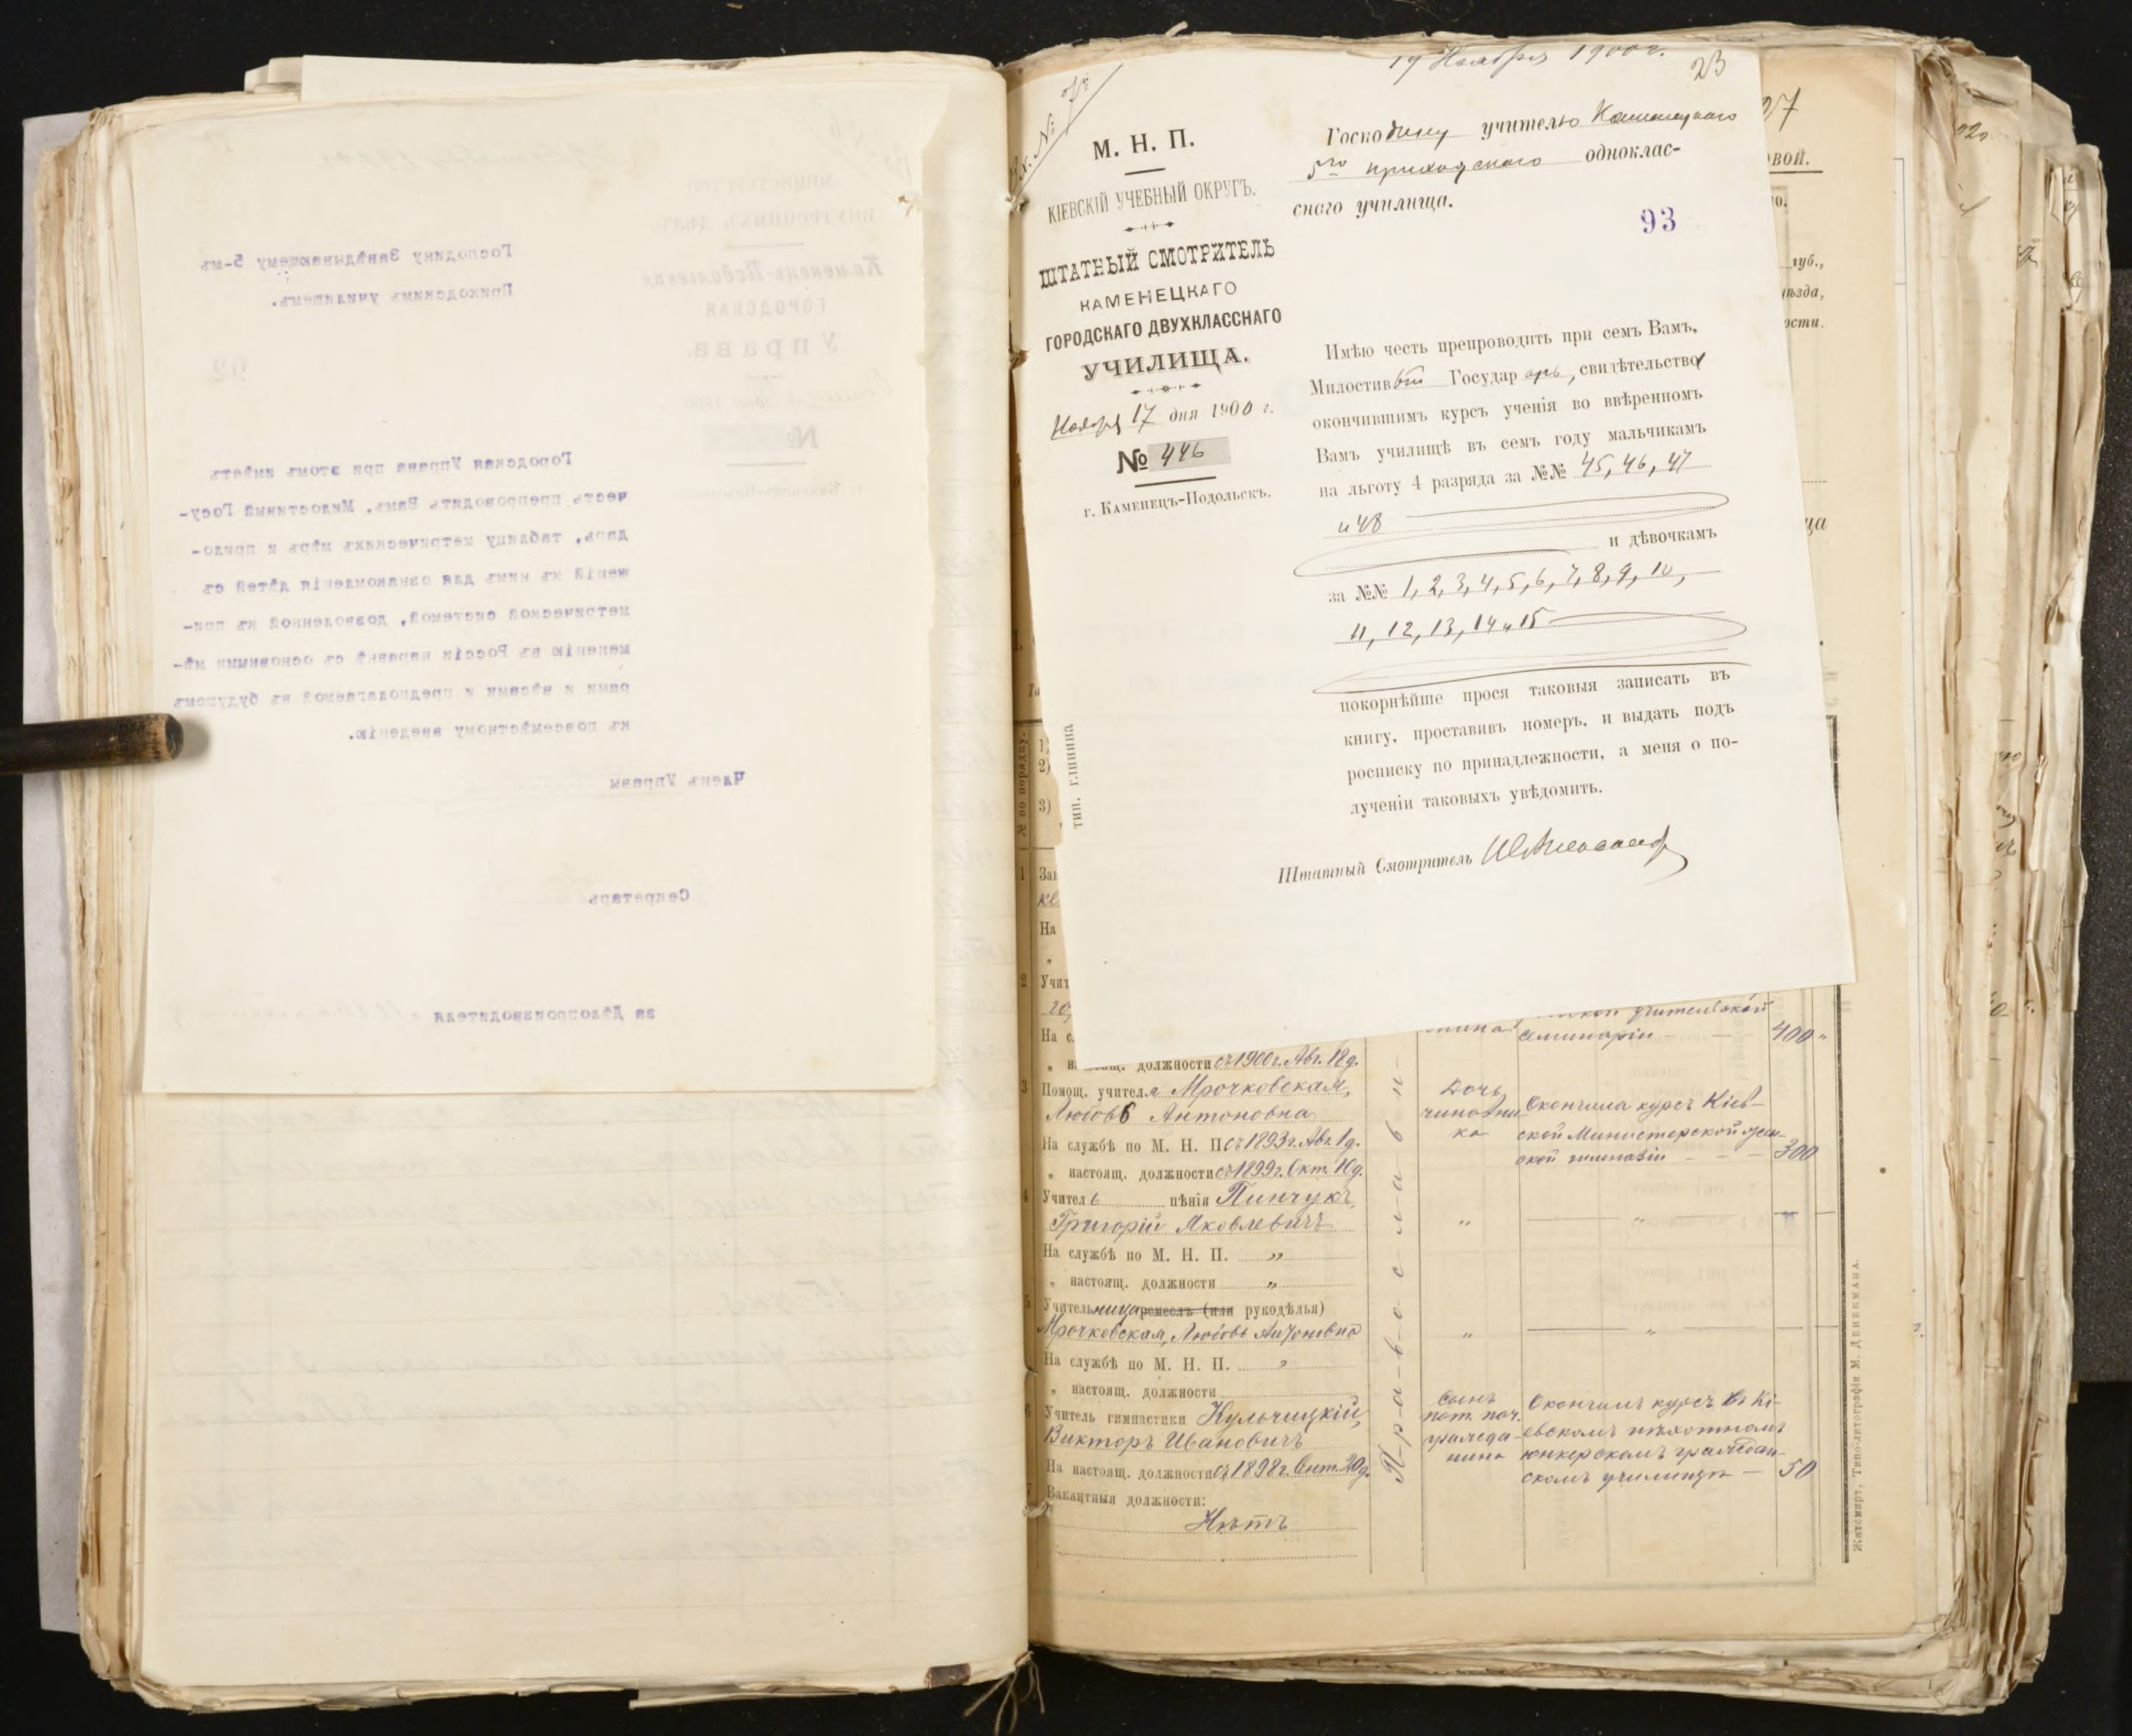 Господину Завѣдывающему 5-мъ
Приходскимъ училищемъ.
Городская Управа при этомъ имѣетъ
честь препроводить Вамъ, Милостивый Госу-
дарь, таблицу метрическихъ мѣръ и прило-
женій къ нимъ для ознакомленія дѣтей съ
метрической системой, дозволенной къ при-
мѣненію въ Россіи наравнѣ съ основными мѣ-
рами и вѣсами и предполагаемой въ будущемъ
къ повсемѣстному введенію.
Членъ Управы
Секретарь
за Дѣлопроизводителя
МИНИСТЕРСТВО
ВНУТРЕННИХЪ ДѢЛЪ.
Каменецъ-Подольская
ГОРОДСКАЯ
Управа.
№
92
19 Ноября 1900 г.
23
Вх. №
М. Н. П.
КІЕВСКІЙ УЧЕБНЫЙ ОКРУГЪ.
ШТАТНЫЙ СМОТРИТЕЛЬ
КАМЕНЕЦКАГО
ГОРОДСКАГО ДВУХКЛАССНАГО
УЧИЛИЩА.
Ноября 17 дня 1900 г.
№ 446
г. Каменецъ-Подольскъ.
тип. глинина
Господину учителю Каменецкаго
5го приходскаго одноклас-
снаго училища.
93
Имѣю честь препроводить при семъ Вамъ,
Милостивый Государь, свидѣтельства
окончившимъ курсъ ученія во ввѣренномъ
Вамъ училищѣ въ семъ году мальчикамъ
на льготу 4 разряда за №№ 45, 46, 47
и 48
и дѣвочкамъ
за №№ 1, 2, 3, 4, 5, 6, 7, 8, 9, 10,
11, 12, 13, 14 и 15
покорнѣйше прося таковыя записать въ
книгу, проставивъ номеръ, и выдать подъ
росписку по принадлежности, а меня о по-
лученіи таковыхъ увѣдомить.
Штатный Смотритель
97
овой.
губ.,
ѣзда,
ости.
№ по порядку.
1)
2)
3)
1 Зав
На
2 Учит
На с
учительской
семинаріи — 400 "
" настоящ. должности съ 1900 г. Авг. 12 д.
3 Помощ. учителя Мрочковская,
Любовь Антоновна
На службѣ по М. Н. П. съ 1893 г. Авг. 1 д.
" настоящ. должности съ 1899 г. Окт. 10 д.
Дочь
чиновни
ка
Окончила курсъ Кіев-
ской Министерской жен-
ской гимназіи — 300
4 Учитель пѣнія Пинчукъ,
Григорій Яковлевичъ
На службѣ по М. Н. П. "
" настоящ. должности "
5 Учительница ремеслъ (или рукодѣлья)
Мрочковская, Любовь Антоновна
На службѣ по М. Н. П. "
" настоящ. должности
6 Учитель гимнастики Кульчицкій,
Викторъ Ивановичъ
На настоящ. должности съ 1898 г. Сент. 20 д.
Сынъ
пот. поч.
гражда-
нина
Окончилъ курсъ въ Кі-
евскомъ пѣхотномъ
юнкерскомъ
скомъ училищѣ — 50
7 Вакантныя должности:
Нѣтъ
П-р-а-в-о-с-л-а-в-н-
Житомиръ, Типо-литографія М. Дененмана.